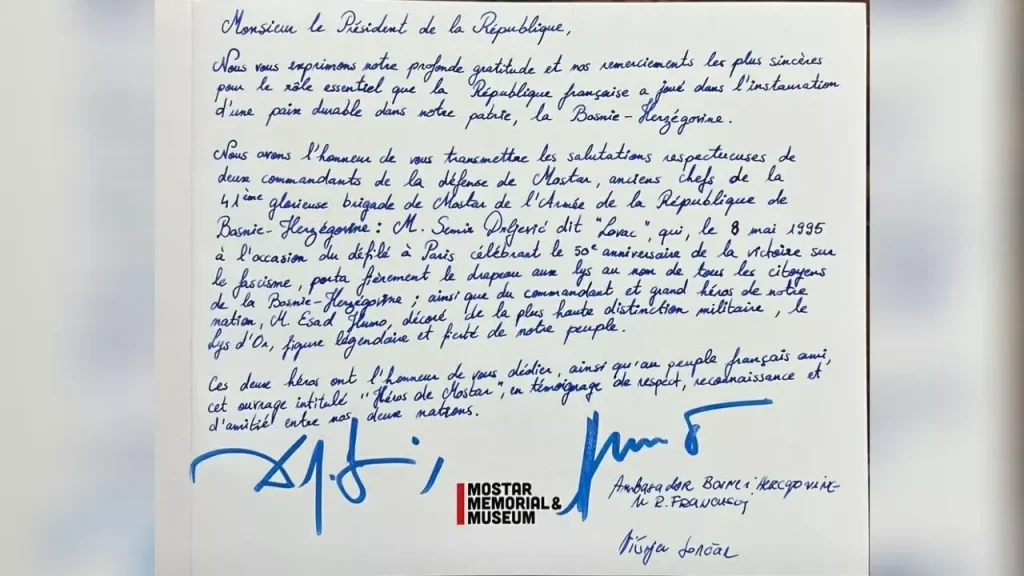 Monsieur le Président de la République,
Nous vous exprimons notre profonde gratitude et nos remerciements les plus sincères
pour le rôle essentiel que la République française a joué dans l'instauration
d'une paix durable dans notre patrie, la Bosnie-Herzégovine.
Nous avons l'honneur de vous transmettre les salutations respectueuses de
deux commandants de la défense de Mostar, anciens chefs de la
41ième glorieuse brigade de Mostar de l'Armée de la République de
Bosnie-Herzégovine : M. Semir Drljević dit "Lovac", qui, le 8 mai 1995
à l'occasion du défilé à Paris célébrant le 50e anniversaire de la victoire sur
le fascisme, porta fièrement le drapeau aux lys au nom de tous les citoyens
de la Bosnie-Herzégovine ; ainsi que du commandant et grand héros de notre
nation, M. Esad Humo, décoré de la plus haute distinction militaire, le
Lys d'Or, figure légendaire et fierté de notre peuple.
Ces deux héros ont l'honneur de vous dédier, ainsi qu'au peuple français ami,
cet ouvrage intitulé "Héros de Mostar", en témoignage de respect, reconnaissance et
d'amitié entre nos deux nations.
MOSTAR
MEMORIAL &
MUSEUM
Ambasador Bosne i Hercegovine
u R. Francuskoj